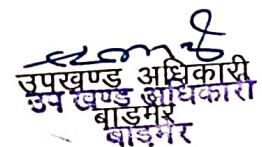 उपखण्ड अधिकारी
उप खण्ड अधिकारी
बाडमेर
बाड़मेर